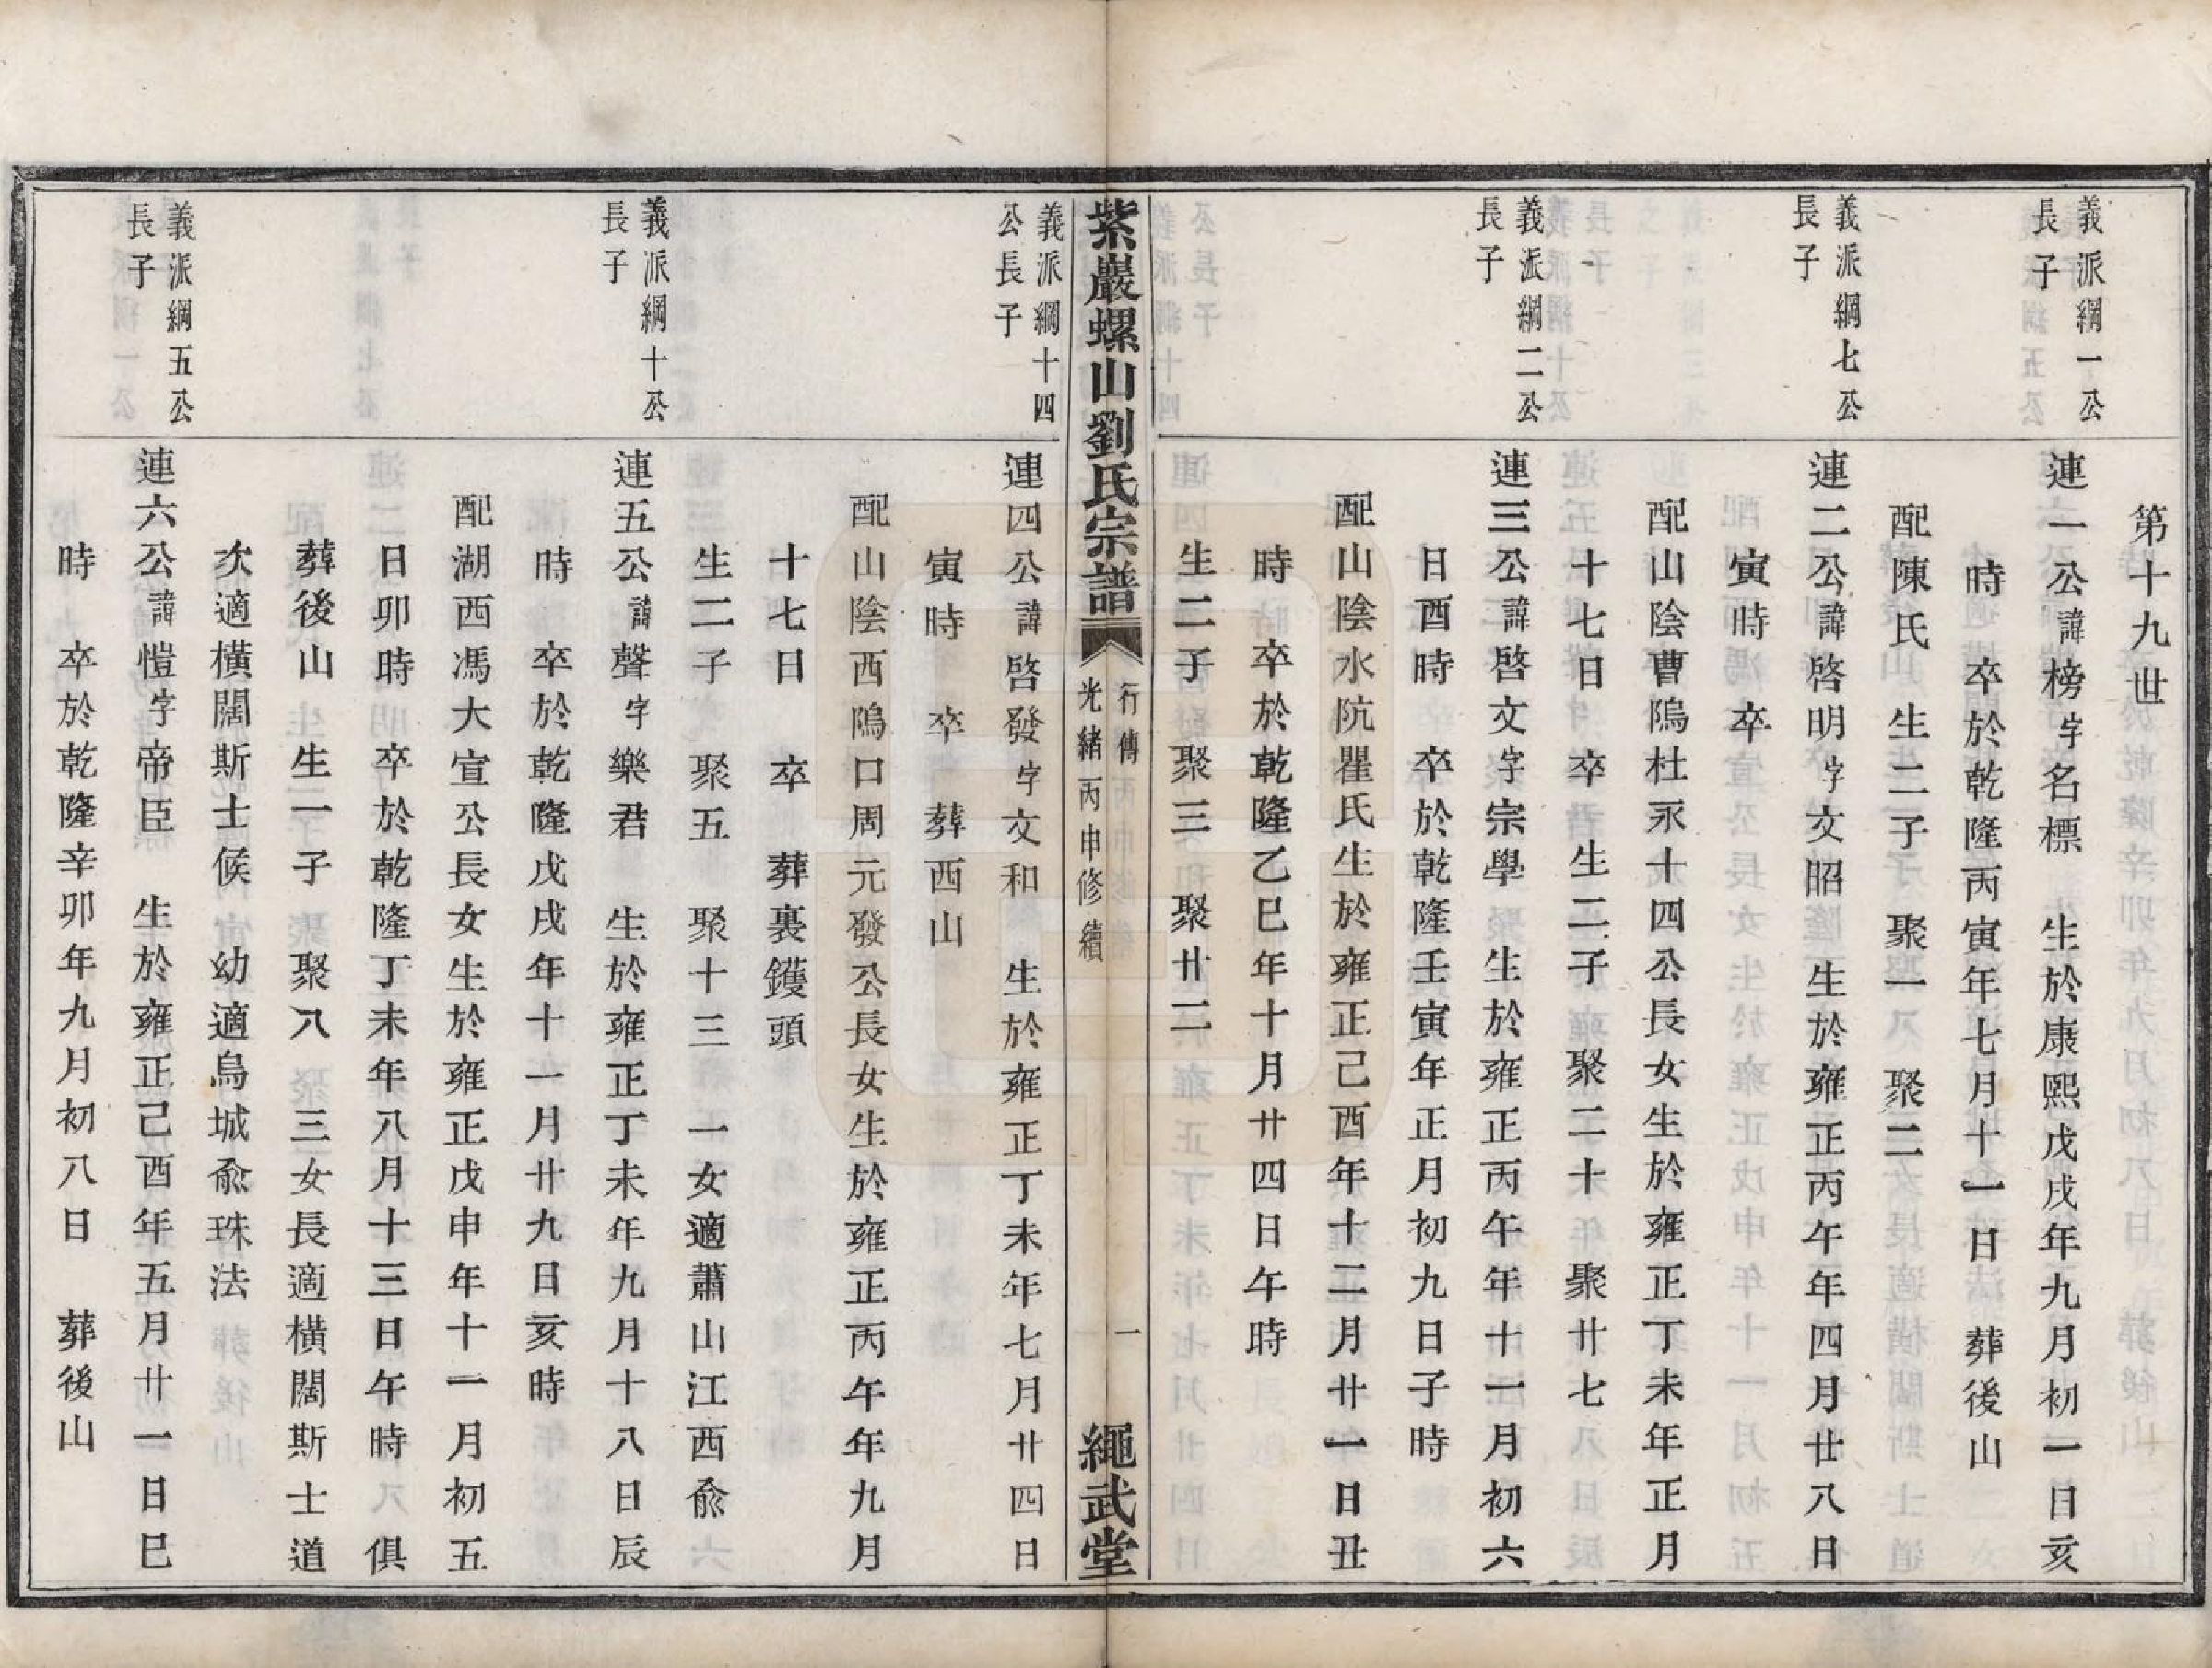 第十九世
義派綱一公
長子
連一公諱榜字名標　生於康熙戊戌年九月初一日亥
時　卒於乾隆丙寅年七月十一日　葬後山
配陳氏　生二子　聚一　聚二
義派綱七公
長子
連二公諱啓明字文昭　生於雍正丙午年四月廿八日
寅時　卒
配山陰曹隖杜永十四公長女生於雍正丁未年正月
十七日　卒　生二子　聚二十　聚廿七
義派綱二公
長子
連三公諱啓文字宗學　生於雍正丙午年十一月初六
日酉時　卒於乾隆壬寅年正月初九日子時
配山陰水阬瞿氏生於雍正己酉年十二月廿一日丑
時　卒於乾隆乙巳年十月廿四日午時
生二子　聚三　聚廿二
紫巖螺山劉氏宗譜
行傳
光緒丙申修續
一
繩武堂
義派綱十四
公長子
連四公諱啓發字文和　生於雍正丁未年七月廿四日
寅時　卒　葬西山
配山陰西隖口周元發公長女生於雍正丙午年九月
十七日　卒　葬裏鑊頭
生二子　聚五　聚十三　一女適蕭山江西兪
義派綱十公
長子
連五公諱聲字樂君　生於雍正丁未年九月十八日辰
時　卒於乾隆戊戌年十一月廿九日亥時
配湖西馮大宣公長女生於雍正戊申年十一月初五
日卯時　卒於乾隆丁未年八月十三日午時　俱
葬後山　生一子　聚八　三女長適橫闊斯士道
次適橫闊斯士候　幼適烏城兪珠法
義派綱五公
長子
連六公諱愷字帝臣　生於雍正己酉年五月廿一日巳
時　卒於乾隆辛卯年九月初八日　葬後山